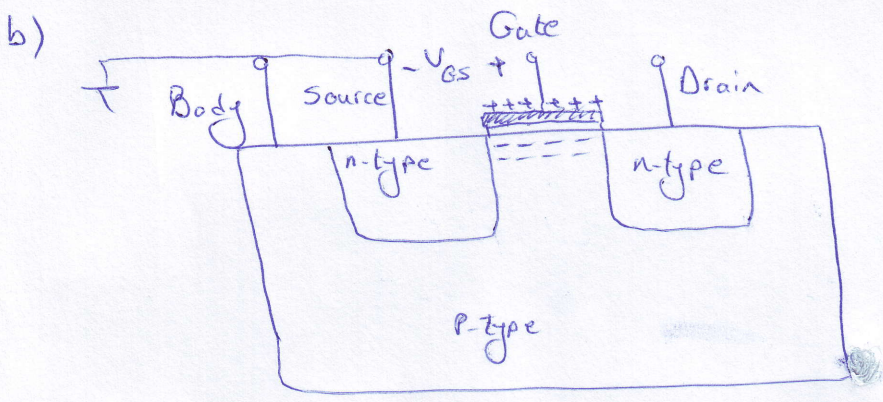 b)
Gate
- VGS +
Body
Source
Drain
++++++
n-type
n-type
P-type